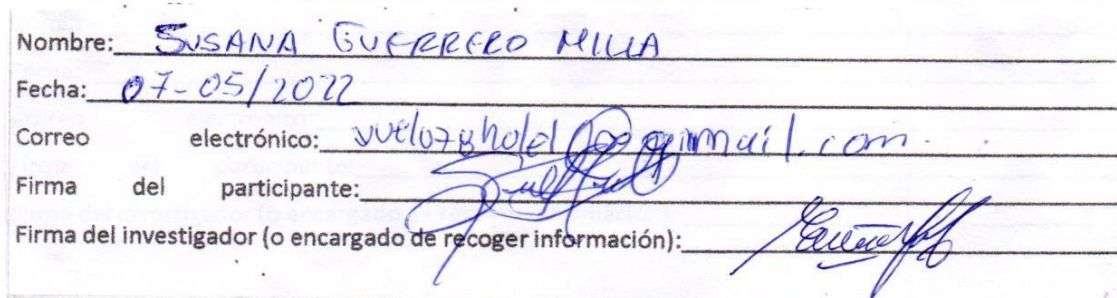 Nombre: SUSANA GUERRERO MILLA
Fecha: 07-05/2022
Correo electrónico: @gmail.com
Firma del participante:
Firma del investigador (o encargado de recoger información):